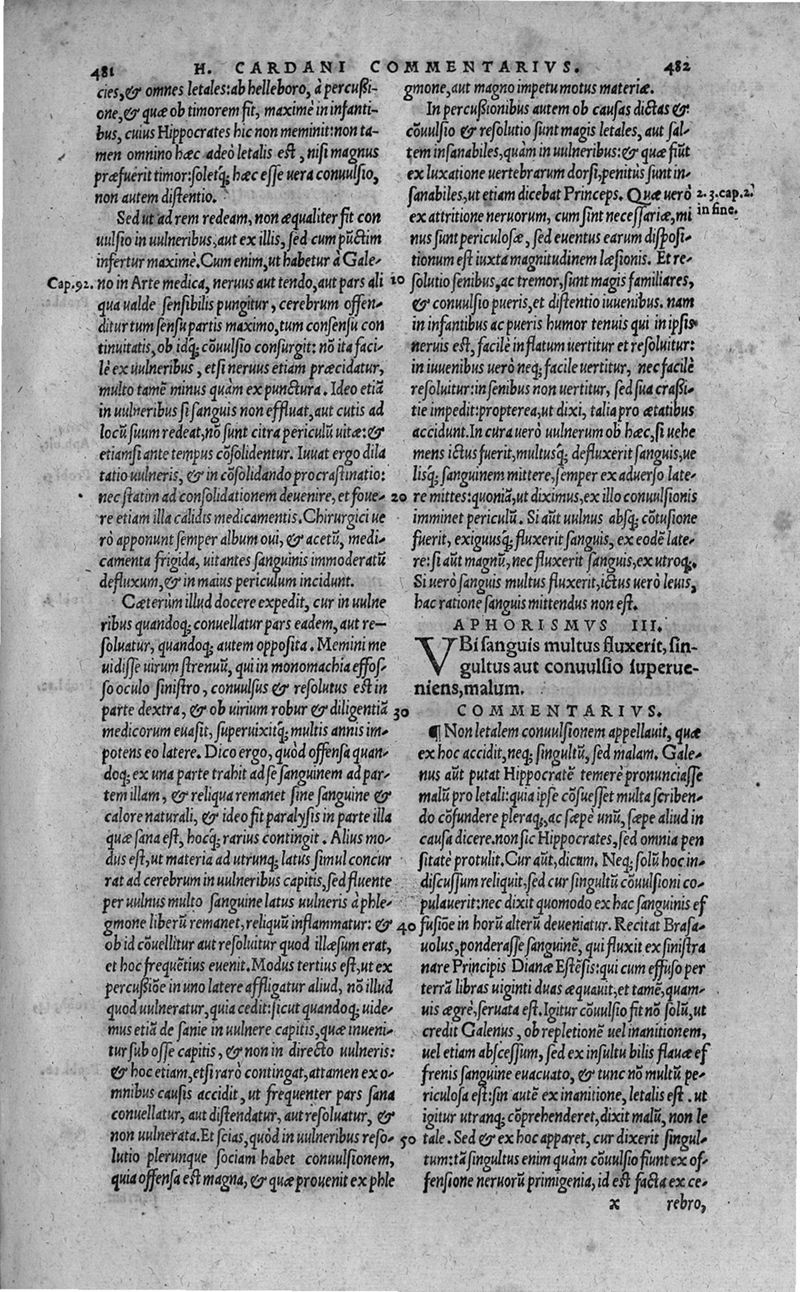 481 H. CARDANI COMMENTARIVS. 482
cies,& omnes letales:ab helleboro, à percußi-
one,& quæ ob timorem fit, maximè in infanti-
bus, cuius Hippocrates hic non meminit:non ta-
men omnino hæc adeò letalis est, nisi magnus
præfuerit timor:soletq́; hæc esse uera conuulsio,
non autem distentio.
Sed ut ad rem redeam, non æqualiter fit con
uulsio in uulneribus,aut ex illis, sed cum pũctim
infertur maximè.Cum enim,ut habetur à Gale-
Cap.92. no in Arte medica, neruus aut tendo,aut pars ali
qua ualde sensibilis pungitur, cerebrum offen-
ditur tum sensu partis maximo,tum consensu con
tinuitatis, ob idq́; cõuulsio consurgit: nõ ita faci-
lè ex uulneribus, etsi neruus etiam præcidatur,
multo tamẽ minus quàm ex punctura. Ideo etiã
in uulneribus si sanguis non effluat,aut cutis ad
locũ suum redeat,nõ sunt citra periculũ uitæ:&
etiamsi ante tempus cõsolidentur. Iuuat ergo dila
tatio uulneris, & in cõsolidando procrastinatio:
nec statim ad consolidationem deuenire, et foue-
re etiam illa calidis medicamentis.Chirurgici ue
rò apponunt semper album oui, & acetũ, medi-
camenta frigida, uitantes sanguinis immoderatũ
defluxum,& in maius periculum incidunt.
Cæterùm illud docere expedit, cur in uulne
ribus quandoq́; conuellatur pars eadem, aut re-
soluatur, quandoq́; autem opposita. Memini me
uidisse uirum strenuũ, qui in monomachia effos-
so oculo sinistro, conuulsus & resolutus est in
parte dextra, & ob uirium robur & diligentiã
medicorum euasit, superuixitq́; multis annis im-
potens eo latere. Dico ergo, quòd offensa quan-
doq́; ex una parte trahit ad se sanguinem ad par-
tem illam, & reliqua remanet sine sanguine &
calore naturali, & ideo fit paralysis in parte illa
quæ sana est, hocq́; rarius contingit. Alius mo-
dus est,ut materia ad utrunq; latus simul concur
rat ad cerebrum in uulneribus capitis,sed fluente
per uulnus multo sanguine latus uulneris à phle-
gmone liberũ remanet,reliquũ inflammatur: &
ob id cõuellitur aut resoluitur quod illæsum erat,
et hoc frequẽtius euenit.Modus tertius est,ut ex
percußiõe in uno latere affligatur aliud, nõ illud
quod uulneratur,quia cedit:sicut quandoq́; uide-
mus etiã de sanie in uulnere capitis,quæ inueni-
tur sub osse capitis, & non in directo uulneris:
& hoc etiam,etsi rarò contingat,attamen ex o-
mnibus causis accidit, ut frequenter pars sana
conuellatur, aut distendatur, aut resoluatur, &
non uulnerata.Et scias,quòd in uulneribus reso-
lutio plerunque sociam habet conuulsionem,
quia offensa est magna, & quæ prouenit ex phle
gmone,aut magno impetu motus materiæ.
In percußionibus autem ob causas dictas &
cõuulsio & resolutio sunt magis letales, aut sal-
tem insanabiles,quàm in uulneribus:& quæ fiũt
ex luxatione uertebrarum dorsi,penitus sunt in-
sanabiles,ut etiam dicebat Princeps. Quæ uerò 2.3.cap.2.
ex attritione neruorum, cum sint necessariæ,mi in fine.
nus sunt periculosæ, sed euentus earum disposi-
tionum est iuxta magnitudinem læsionis. Et re-
10 solutio senibus,ac tremor,sunt magis familiares,
& conuulsio pueris,et distentio iuuenibus. nam
in infantibus ac pueris humor tenuis qui in ipsis
neruis est, facilè inflatum uertitur et resoluitur:
in iuuenibus uerò neq́; facile uertitur, nec facilè
resoluitur:in senibus non uertitur, sed sua craßi-
tie impedit:propterea,ut dixi, talia pro ætatibus
accidunt.In cura uerò uulnerum ob hæc,si uehe
mens ictus fuerit,multusq́; defluxerit sanguis,ue
lisq́; sanguinem mittere,semper ex aduerso late-
20 re mittes:quoniã,ut diximus,ex illo conuulsionis
imminet periculũ. Si aũt uulnus absq́; cõtusione
fuerit, exiguusq́; fluxerit sanguis, ex eodẽ late-
re:si aũt magnũ,nec fluxerit sanguis,ex utroq́;.
Si uerò sanguis multus fluxerit,ictus uerò leuis,
hac ratione sanguis mittendus non est.
APHORISMVS III.
VBi sanguis multus fluxerit, sin-
gultus aut conuulsio superue-
niens,malum.
30 COMMENTARIVS.
¶ Non letalem conuulsionem appellauit, quæ
ex hoc accidit,neq́; singultũ, sed malam. Gale-
nus aũt putat Hippocratẽ temerè pronunciasse
malũ pro letali:quia ipse cõsuesset multa scriben-
do cõfundere pleraq́;,ac sæpè unũ, sæpe aliud in
causa dicere.non sic Hippocrates,sed omnia pen
sitatè protulit.Cur aũt,dicam. Neq́; solũ hoc in-
discussum reliquit,sed cur singultũ cõuulsioni co-
pulauerit:nec dixit quomodo ex hac sanguinis ef
40 fusiõe in horũ alterũ deueniatur. Recitat Brasa-
uolus,ponderasse sanguinẽ, qui fluxit ex sinistra
nare Principis Dianæ Estẽsis:qui cum effuso per
terrã libras uiginti duas æquauit,et tamẽ,quam-
uis ægrè,seruata est.Igitur cõuulsio fit nõ solũ,ut
credit Galenus, ob repletionẽ uel inanitionem,
uel etiam abscessum, sed ex insultu bilis flauæ ef
frenis sanguine euacuato, & tunc nõ multũ pe-
riculosa est:sin autẽ ex inanitione, letalis est. ut
igitur utranq́; cõprehenderet,dixit malũ, non le
50 tale. Sed & ex hoc apparet, cur dixerit singul-
tum:tã singultus enim quàm cõuulsio fiunt ex of-
fensione neruorũ primigenia, id est facta ex ce-
x rebro,